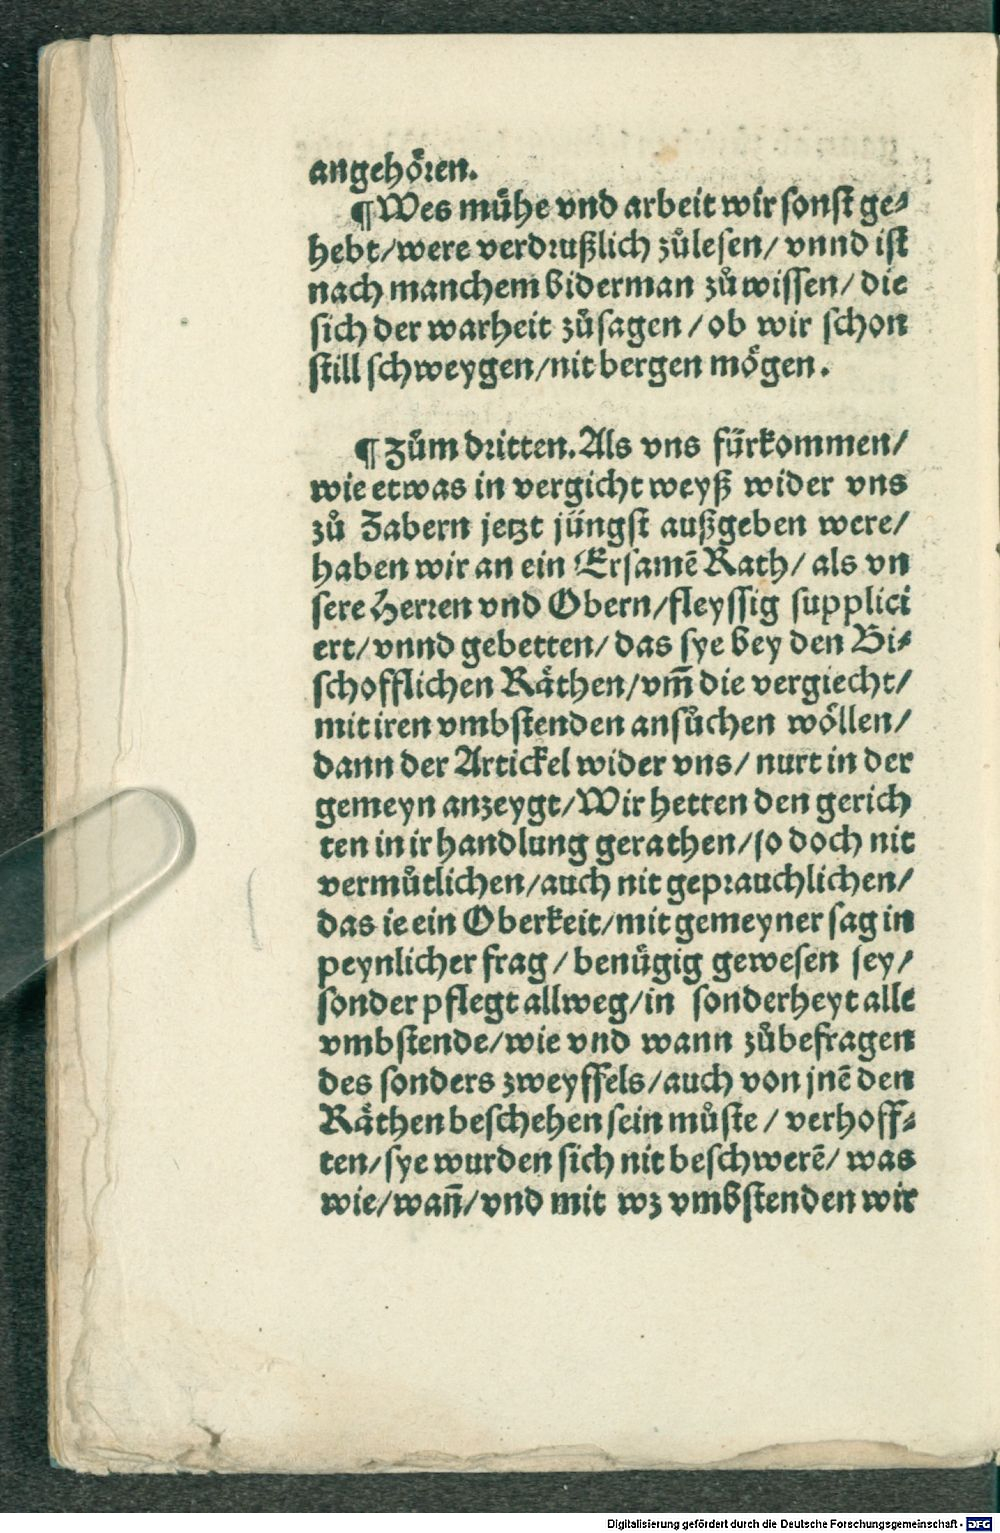 angehoͤren.
¶Wes muͤhe vnd arbeit wir sonst ge⸗
hebt/were verdrußlich zuͦlesen/ vnnd ist
nach manchem biderman zuͦwissen/ die
sich der warheit zuͦsagen/ob wir schon
still schweygen/nit bergen moͤgen.
¶Zuͦm dritten.Als vns fuͤrkommen/
wie etwas in vergicht weyß wider vns
zuͦ Zabern jetzt juͤngst außgeben were/
haben wir an ein Ersamē Rath/ als vn
sere Herren vnd Obern/fleyssig supplici
ert/vnnd gebetten/ das sye bey den Bi⸗
schofflichen Raͤthen/vm̄ die vergiecht/
mit iren vmbstenden ansuͦchen woͤllen/
dann der Artickel wider vns/ nurt in der
gemeyn anzeygt/Wir hetten den gerich
ten in ir handlung gerathen/so doch nit
vermuͦtlichen/auch nit geprauchlichen/
das ie ein Oberkeit/mit gemeyner sag in
peynlicher frag/ benuͤgig gewesen sey/
sonder pflegt allweg/in sonderheyt alle
vmbstende/wie vnd wann zuͦbefragen
des sonders zweyffels/auch von jnē den
Raͤthen beschehen sein muͦste/ verhoff⸗
ten/sye wurden sich nit beschwerē/ was
wie/wañ/vnd mit wz vmbstenden wir
Digitalisierung gefördert durch die Deutsche Forschungsgemeinschaft - DFG